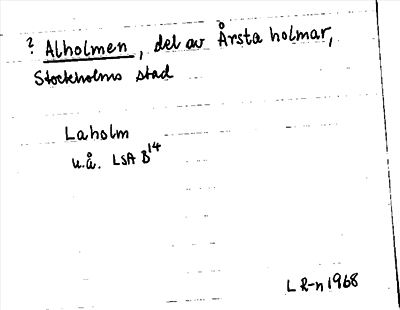 ? Alholmen, del av Årsta holmar,
Stockholms stad
Laholm
u.å. LSA B14
L R-n 1968